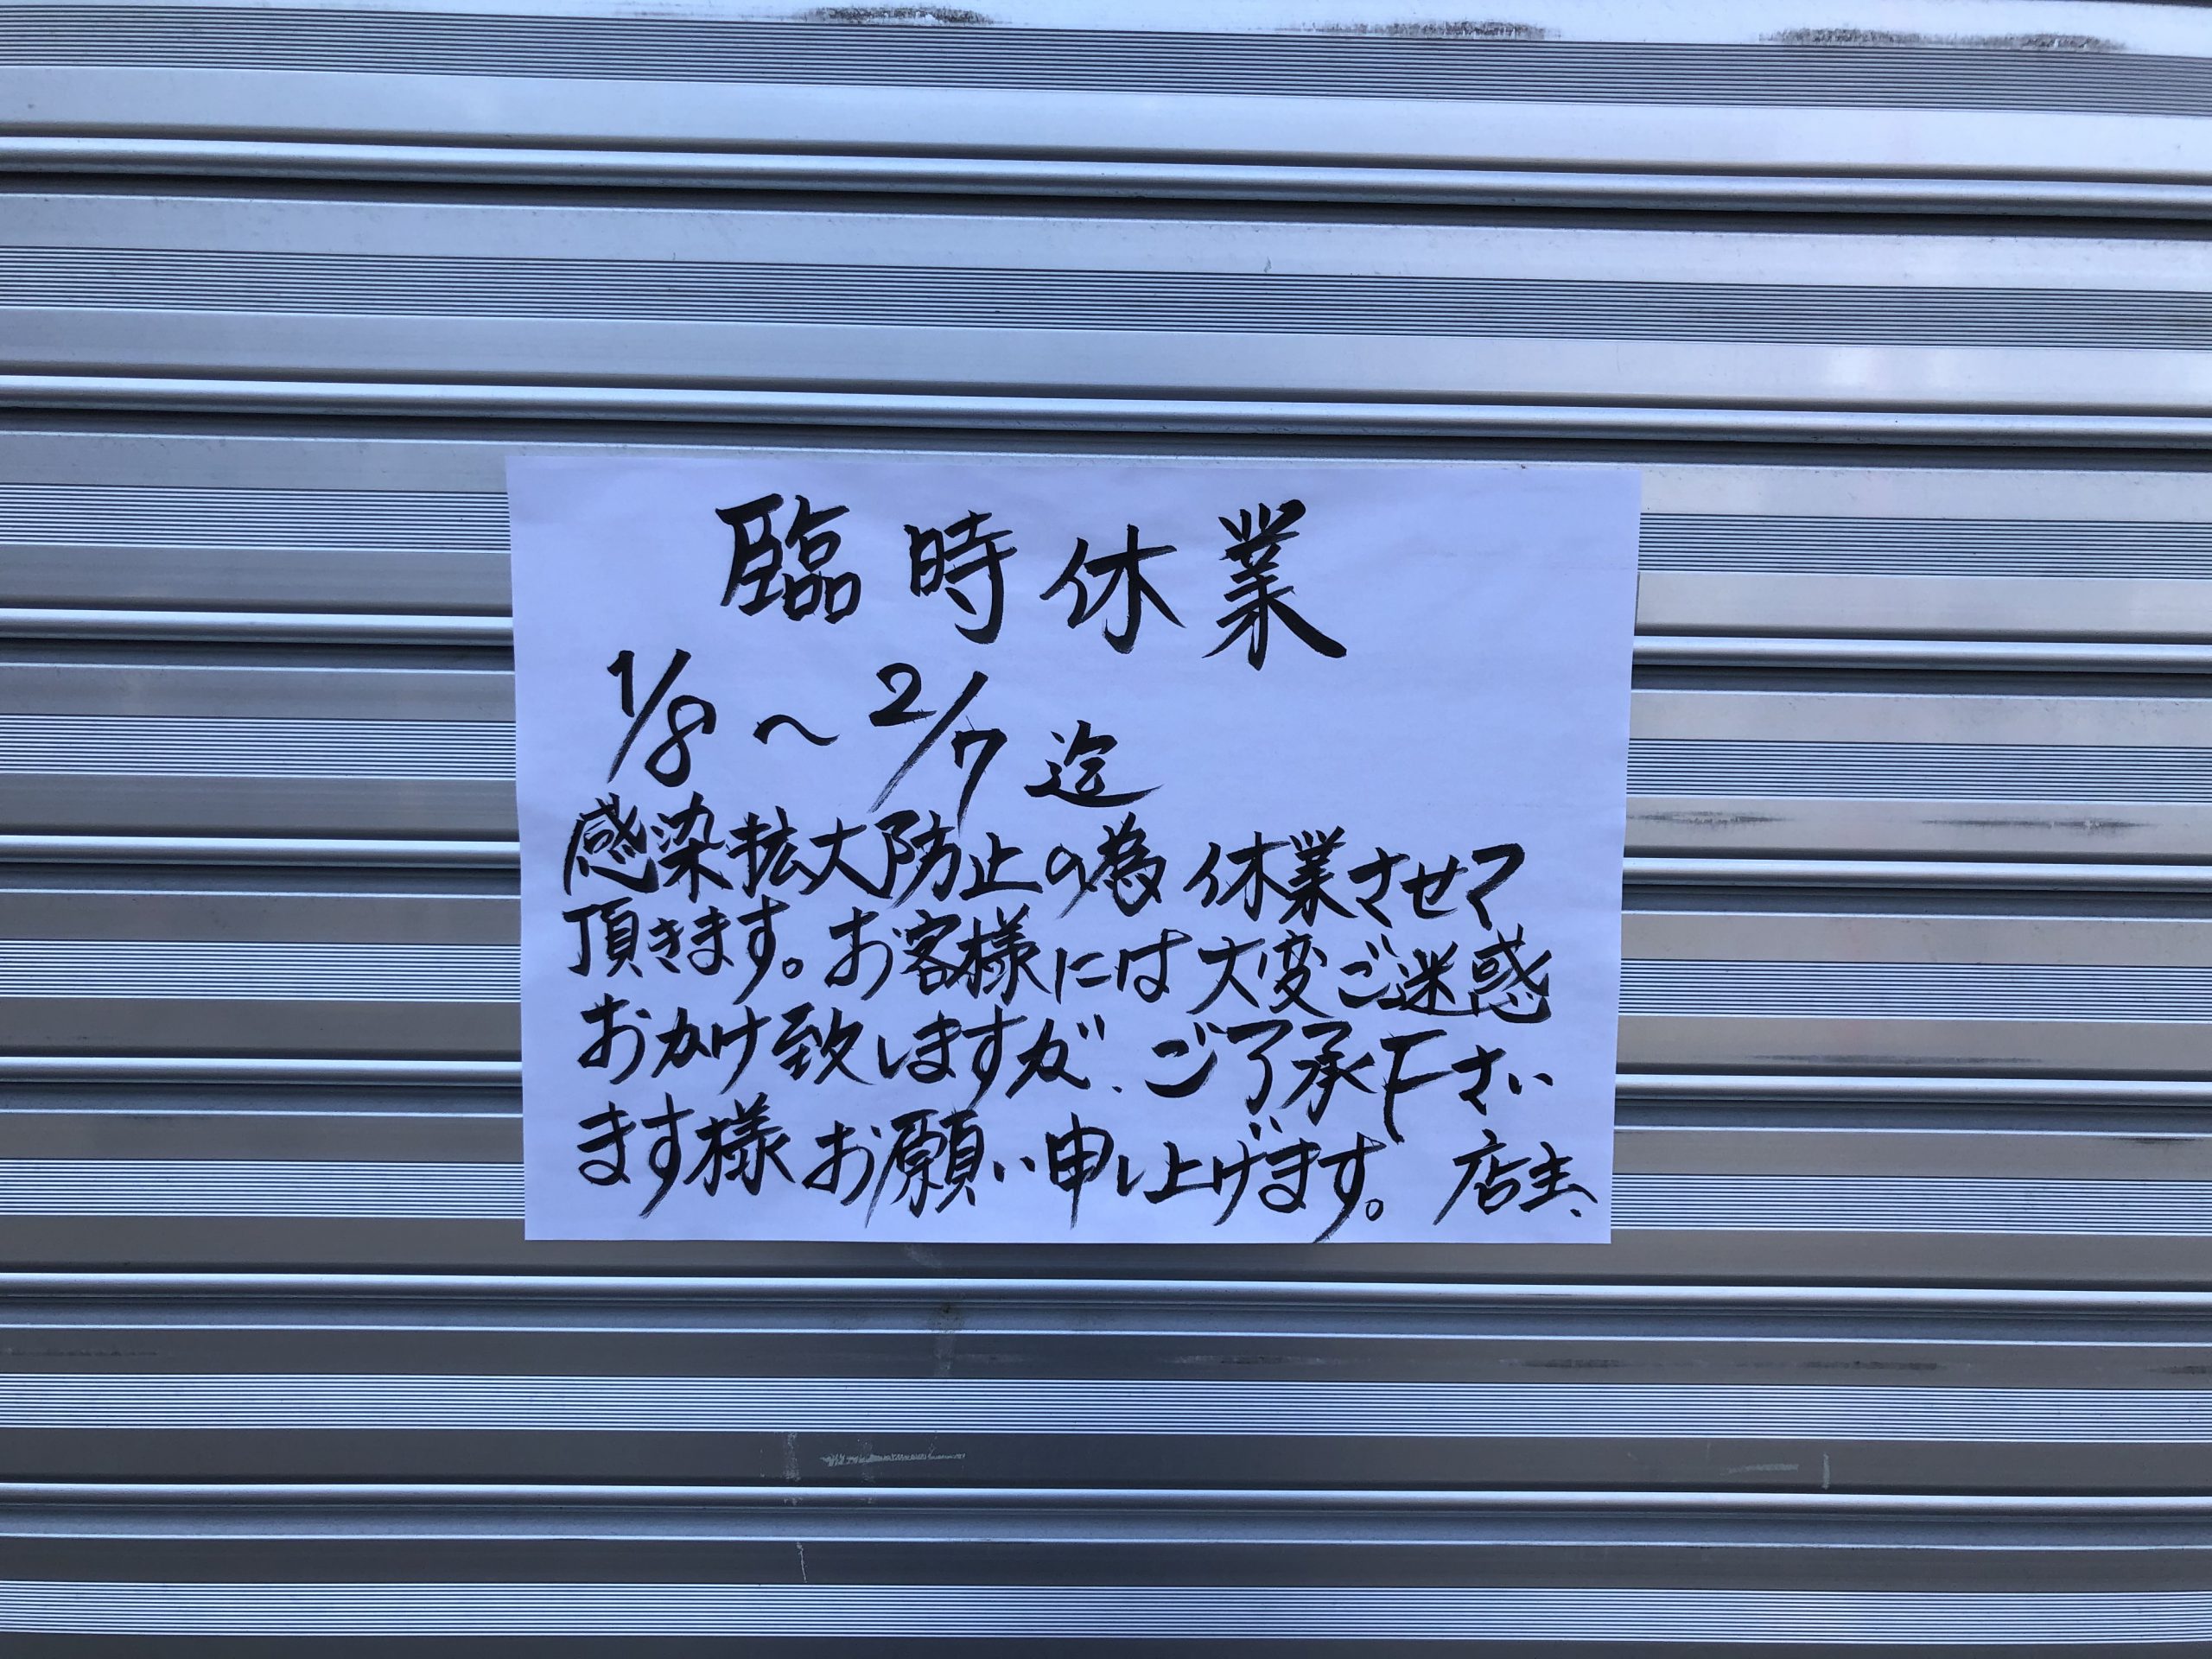 臨時休業
1/8～2/7迄
感染拡大防止の為 休業させて
頂きます。お客様には大変ご迷惑
おかけ致しますが、ご了承下さい
ます様お願い申し上げます。 店主、